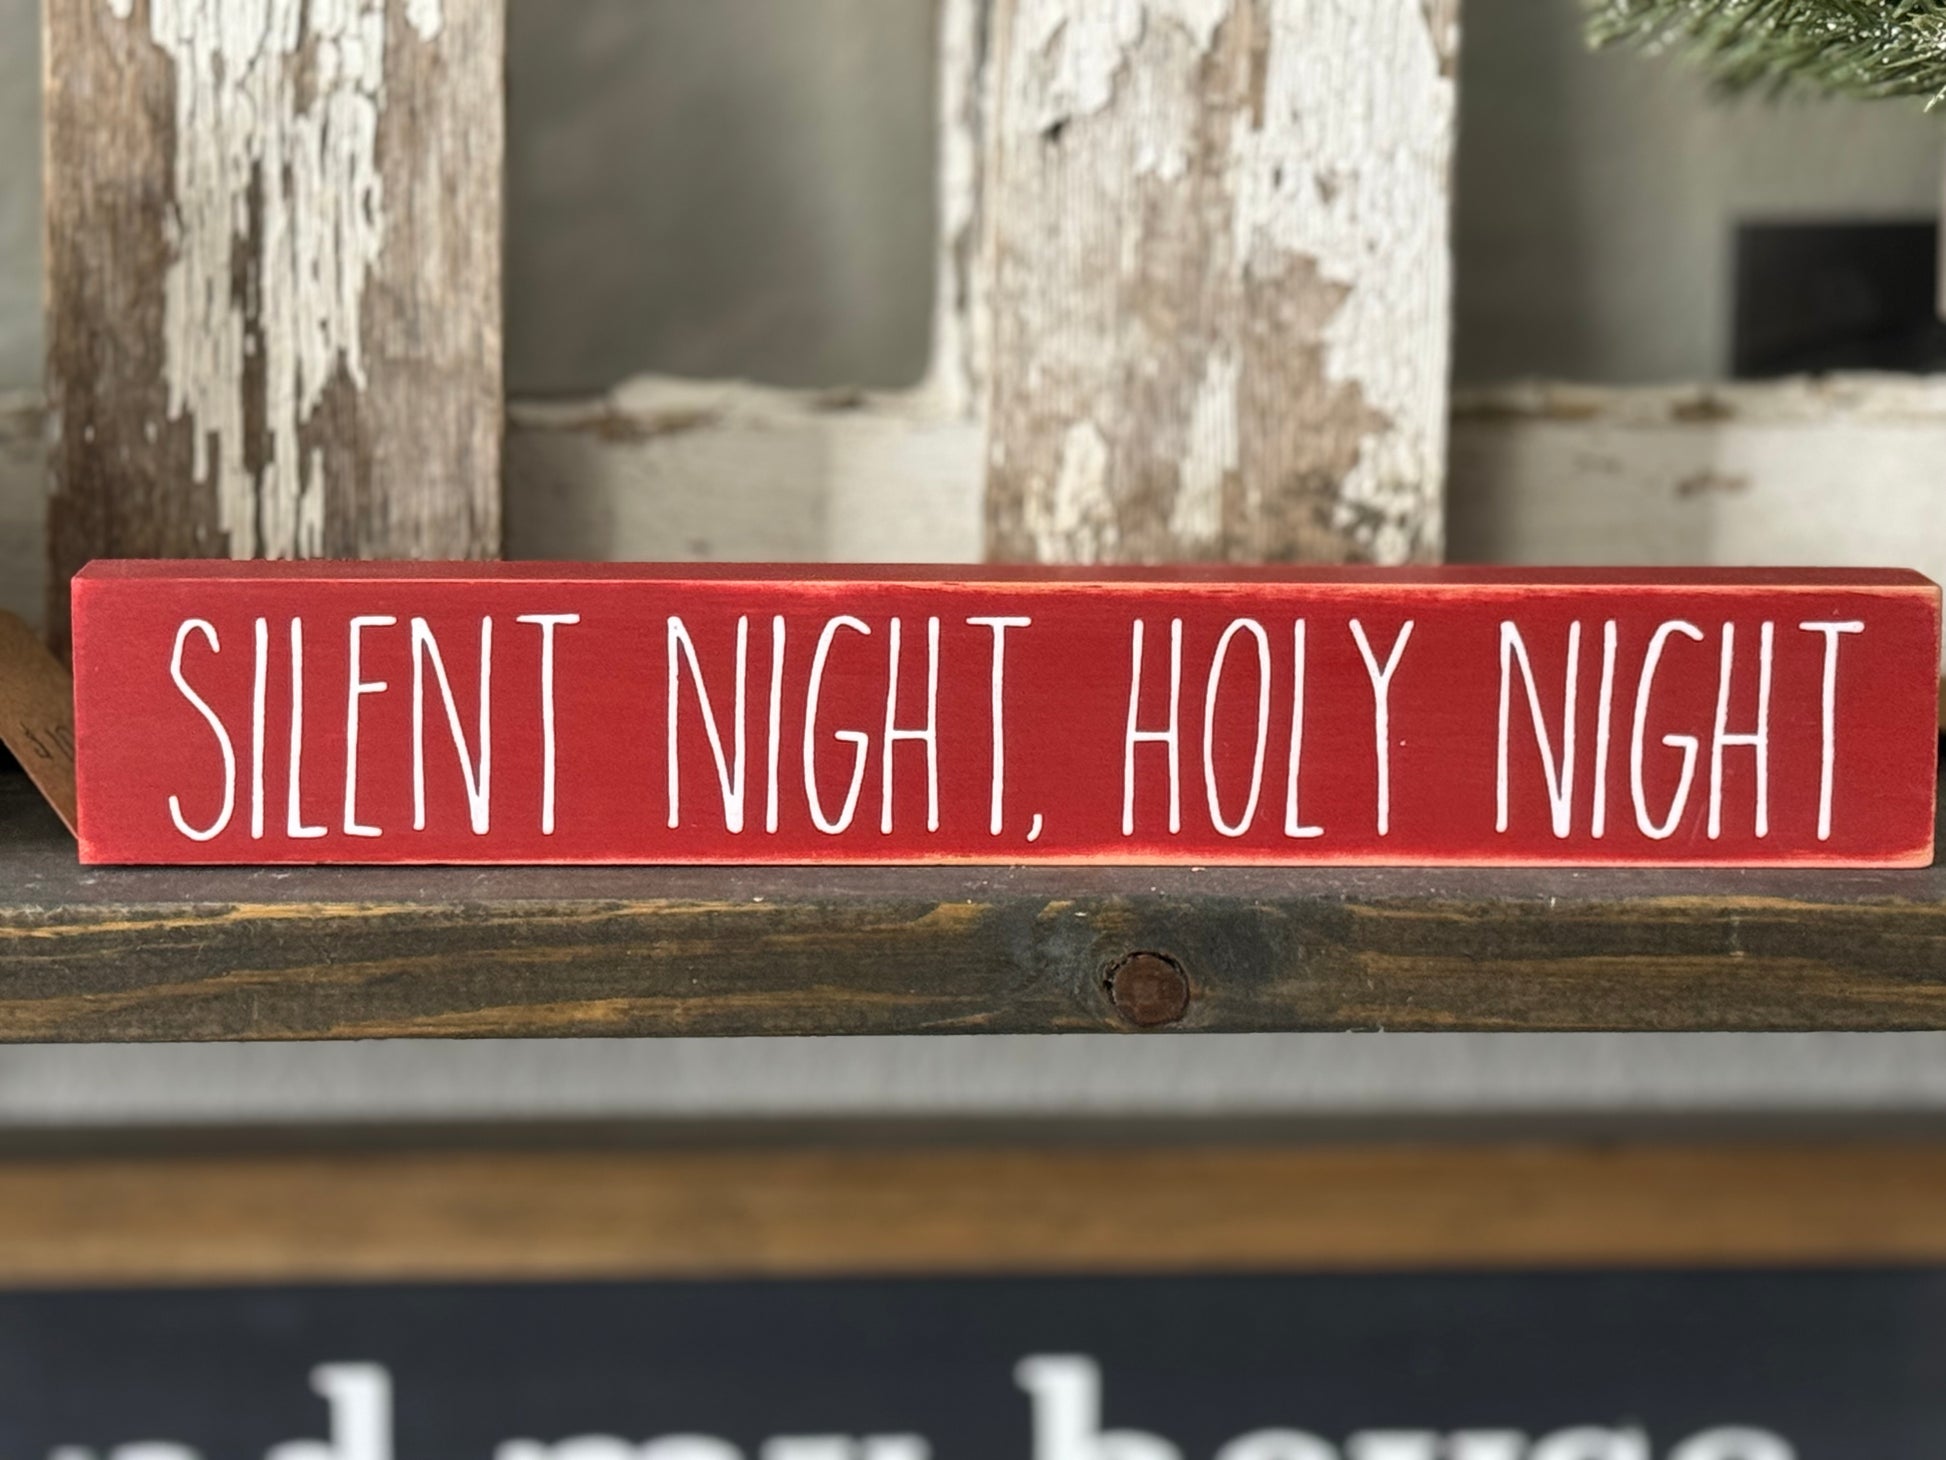 SILENT NIGHT, HOLY NIGHT